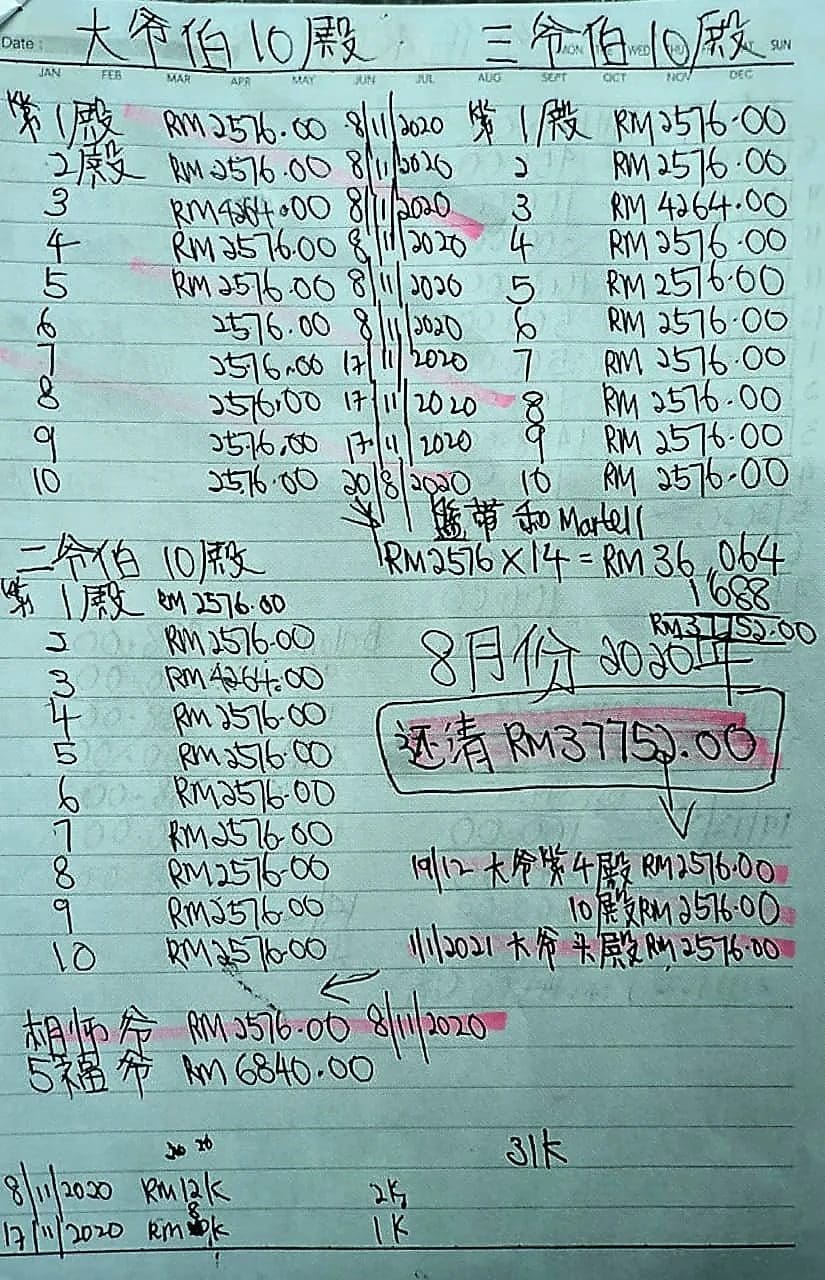 大爷伯10殿 三爷伯10殿
Date: MON TUE WED THU SAT SUN
JAN FEB MAR APR MAY JUN JUL AUG SEPT OCT NOV DEC
第1殿 RM2576.00 8/11/2020 第1殿 RM2576.00
2殿 RM2576.00 8/11/2020 2 RM2576.00
3 RM4264.00 8/11/2020 3 RM4264.00
4 RM2576.00 8/11/2020 4 RM2576.00
5 RM2576.00 8/11/2020 5 RM2576.00
6 2576.00 8/11/2020 6 RM2576.00
7 2576.00 17/11/2020 7 RM2576.00
8 2576.00 17/11/2020 8 RM2576.00
9 2576.00 17/11/2020 9 RM2576.00
10 2576.00 20/8/2020 10 RM2576.00
和Martell
二爷伯10殿 RM2576×14=RM36,064
第1殿 RM2576.00 1688
RM37752.00
2 RM2576.00 8月份2020年
3 RM4264.00
4 RM2576.00
5 RM2576.00 还清RM37752.00
6 RM2576.00
7 RM2576.00
8 RM2576.00 19/12 大爷第4殿RM2576.00
9 RM2576.00 10殿RM2576.00
10 RM2576.00 1/1/2021 大爷头殿RM2576.00
师爷 RM2576.00 8/11/2020
5福爷 RM6840.00
31K
8/11/2020 RM12K 2K
17/11/2020 RM8K 1K